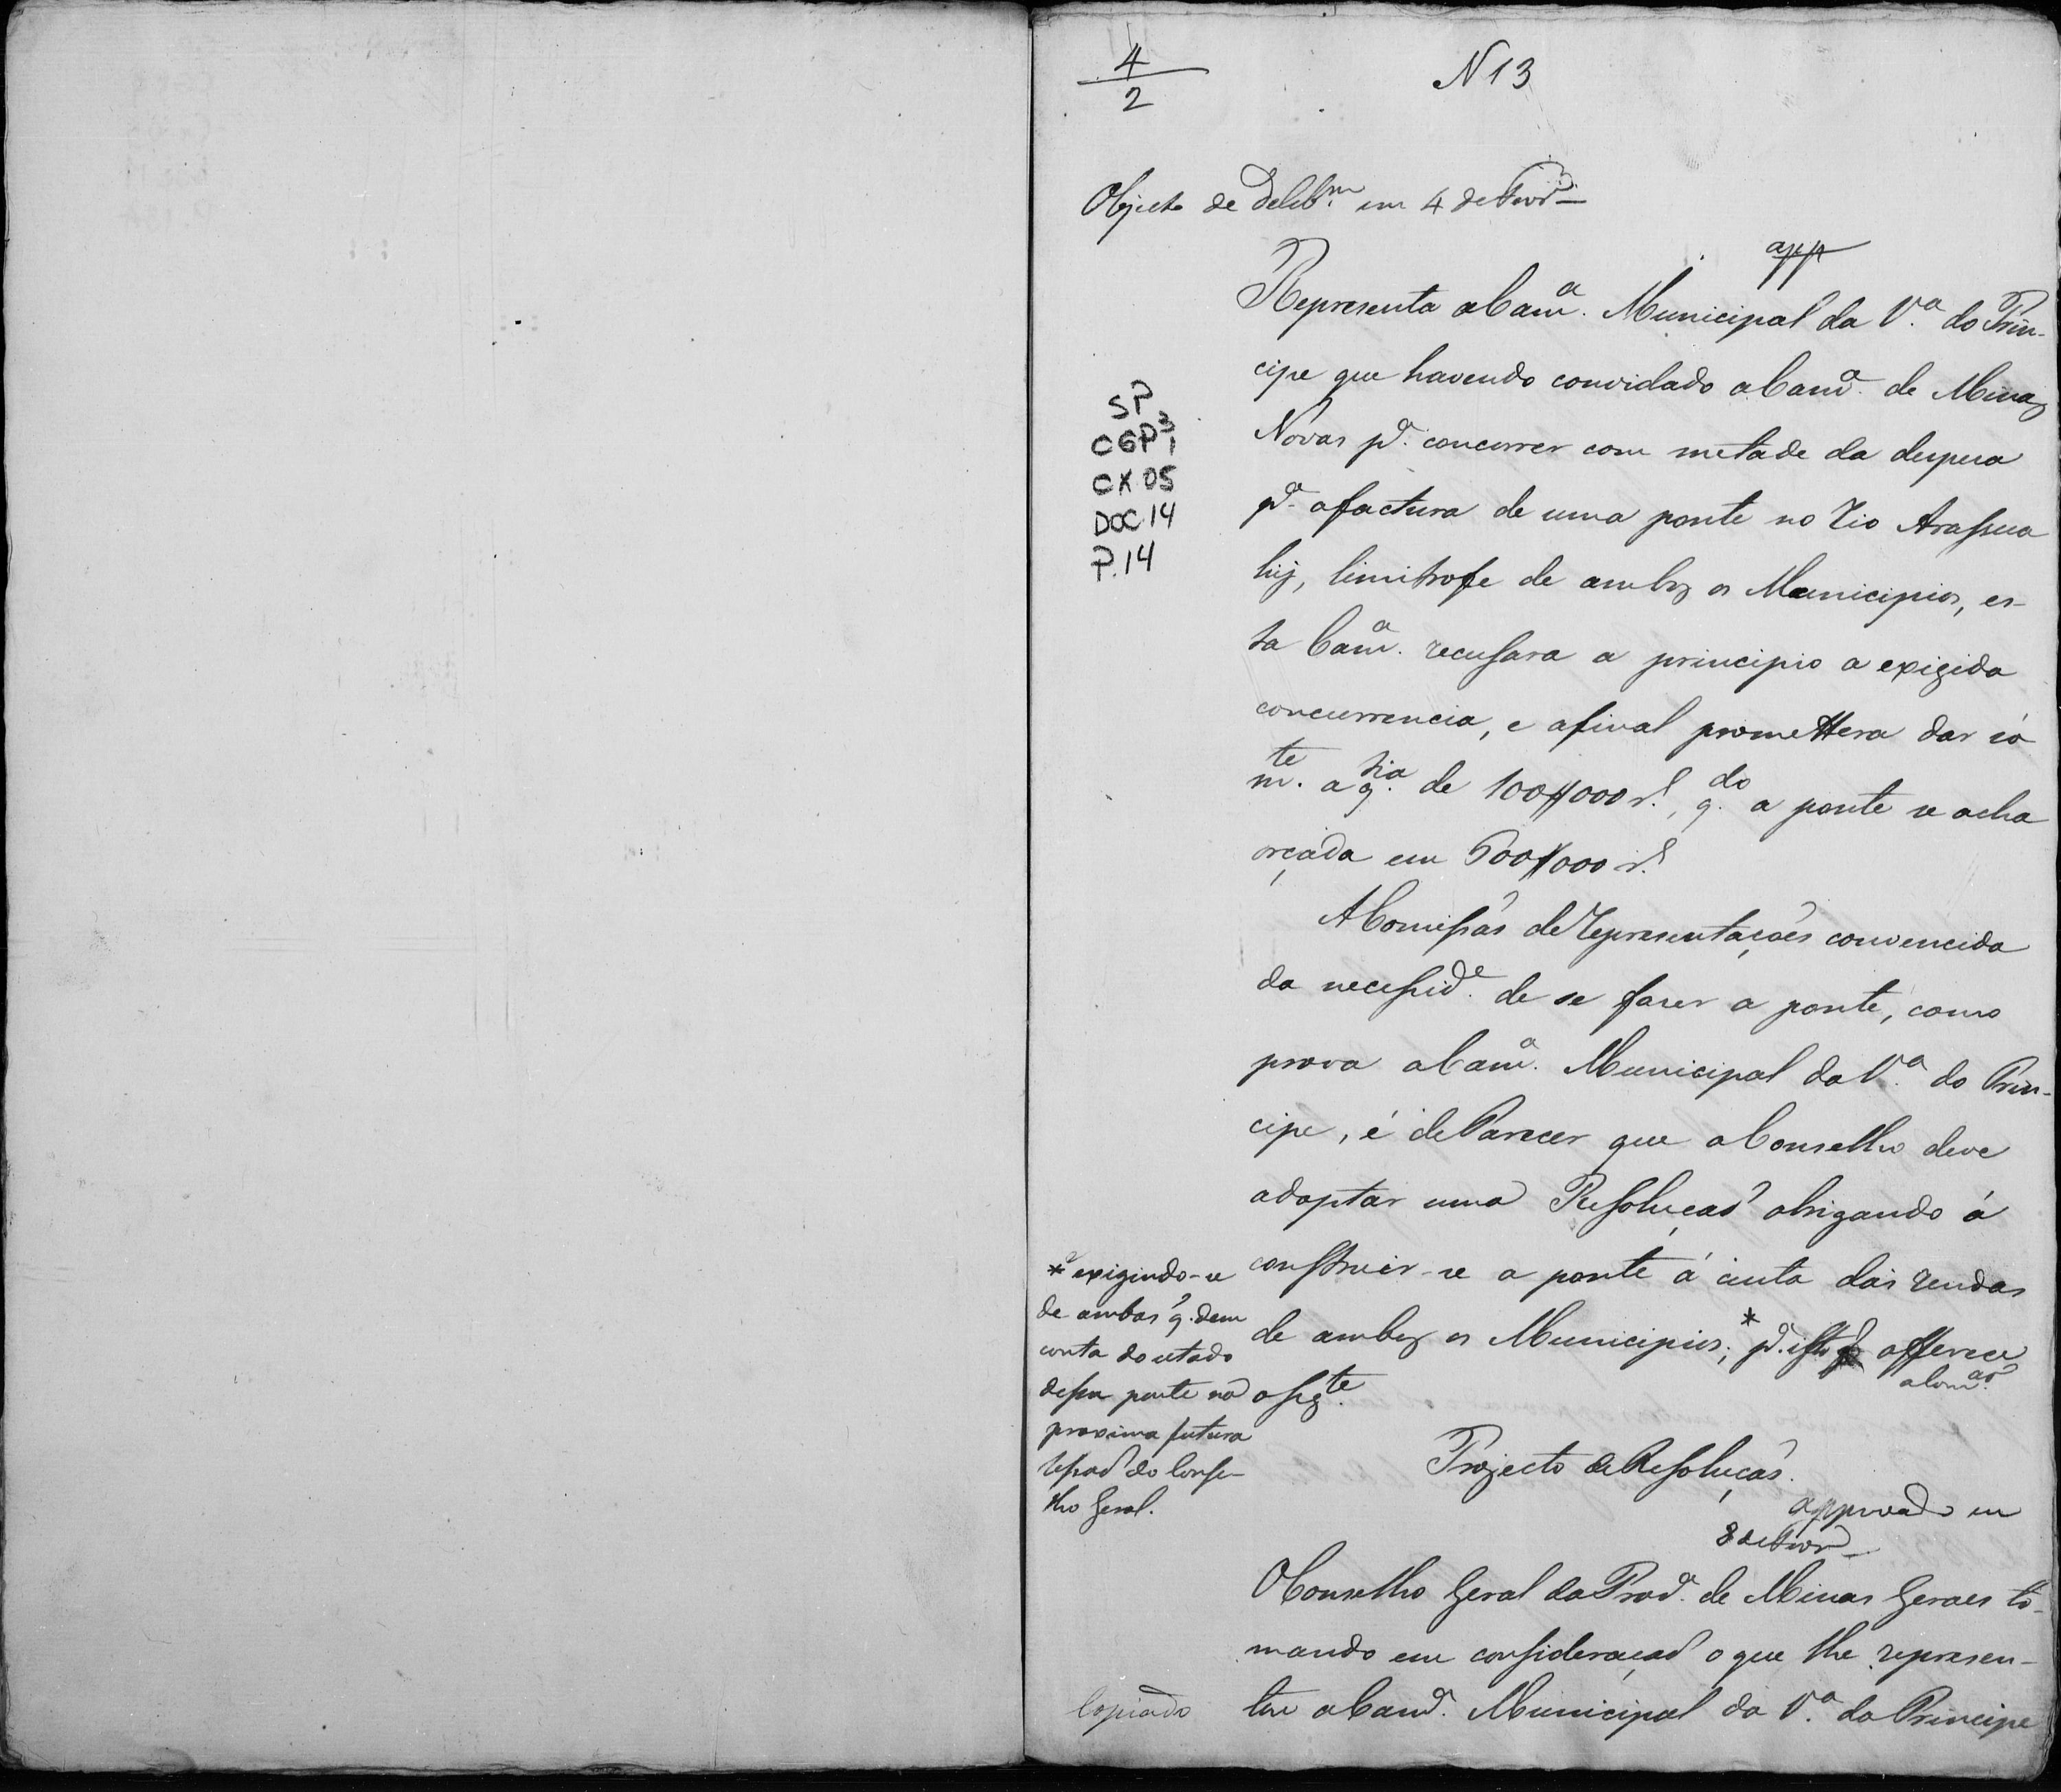 4
2
N 13
Objecto de Delib.m em 4 de Fevr.
app
Representa a Cam.a Municipal da V.a do Prin-
cipe que havendo convidado a Cam.a de Minas
Novas p.a concorrer com metade da despesa
p.a a factura de uma ponte no Rio Arassua
hij, limitrofe de ambos os Municipios, es-
ta Cam.a recusara a principio a exigida
concurrencia, e afinal promettera dar só
m.te a q.tia de 100$000 r.s, q.do a ponte se acha
orçada em 600$000 r.s
A Comissão de Representações convencida
da necessid.e de se fazer a ponte, como
prova a Cam.a Municipal da V.a do Prin-
cipe, é de Parecer que o Conselho deve
adoptar uma Resolução obrigando á
construir-se a ponte á custa das rendas
de ambos os Municipios; * p.a isto offerece
a Com.ão
o seg.te
* exigindo-se
de ambas q. dem
conta do estado
dessa ponte na
proxima futura
sessão do Conse-
lho Geral.
SP
CGP³1
CX 05
DOC 14
P. 14
Projecto de Resolução.
approvado em
8 de Fevr.
O Conselho Geral da Prov.a de Minas Geraes to-
mando em consideração o que lhe represen-
tou a Cam.a Municipal da V.a do Principe
Copiado